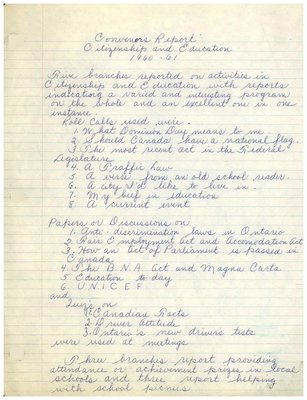 Convenors Report:
Citizenship and Education
1960-61
Five branches reported on activities in
Citizenship and Education with reports
indicating a varied and intresting program
on the whole and an excellent one in one
instance.
Roll Calls used were.
1. What Dominion Day means to me
2. Should Canada have a national flag.
3. The most recent act in the Federal
Legislature
4. A Traffic Law
5. A verse from an old school reader.
6. A city I'd like to live in.
7. My beef in education
8. A current event
Papers or Discussions on
1. Anti-discrimination laws in Ontario
2. Fair Employment act and Accomodation Act
3. How an act of Parliament is passed in
Canada
4. The B.N.A. Act and Magna Carta
5. Education to day
6. U.N.I.C.E.F
and
Quiz's on
1. Canadian Facts
2. Driver attitude
3. Ontario's new drivers tests
were used at meetings
Three branches report providing
attendance or achievement prizes in local
schools and three report helping
with school picnics